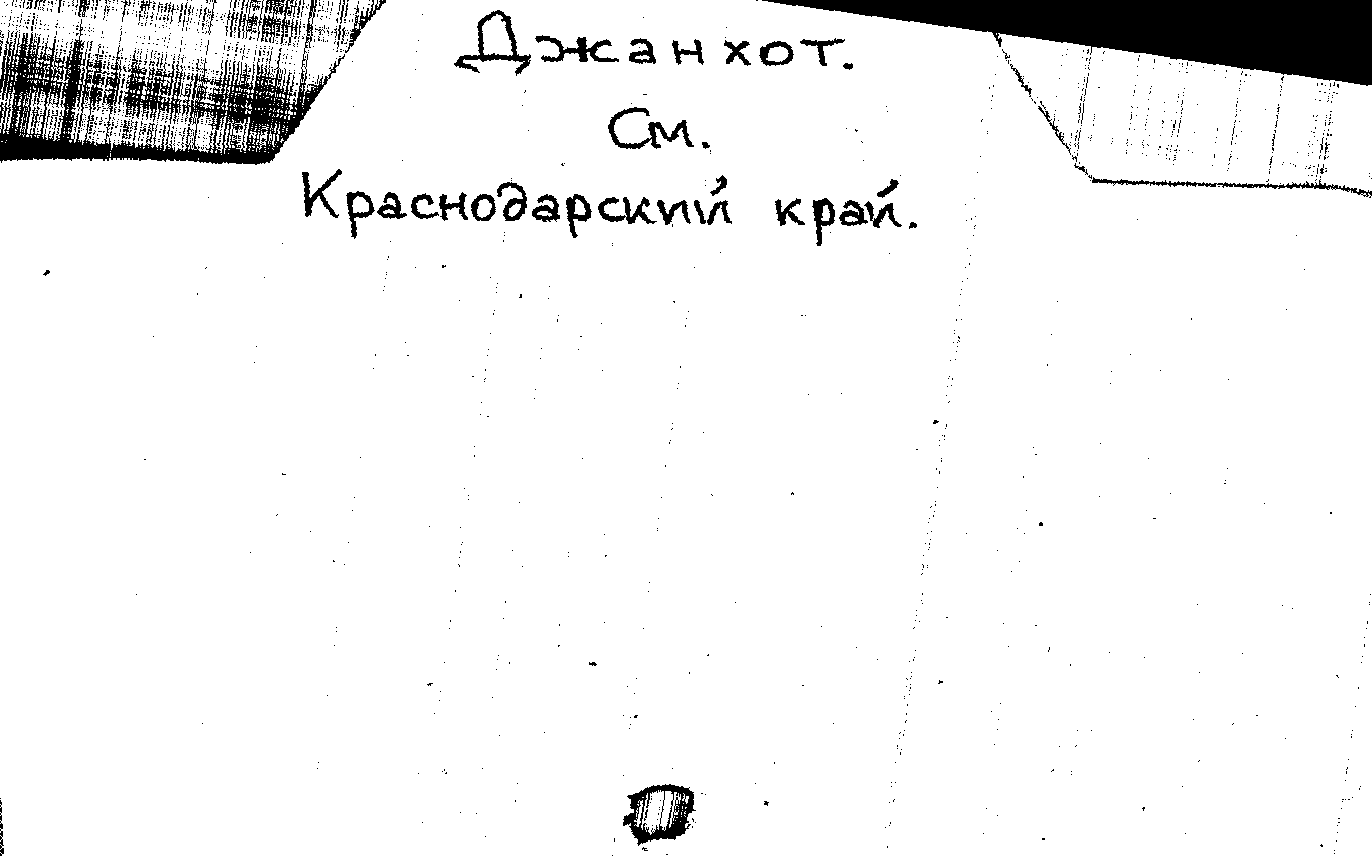 Джанхот.
См.
Краснодарский край.